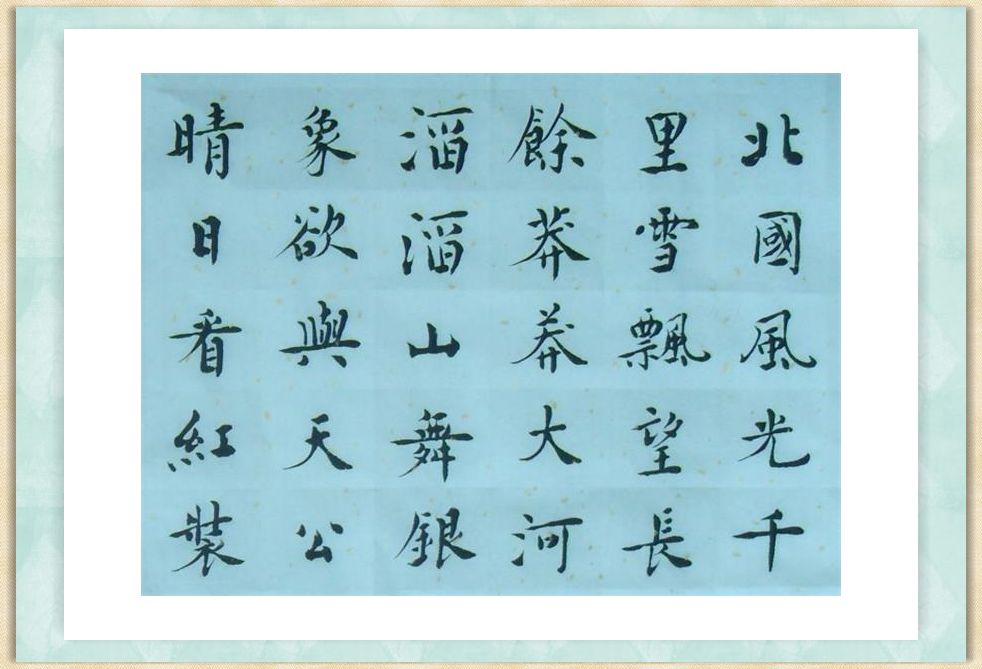 北國風光千
里雪飄望長
餘莽莽大河
滔滔山舞銀
象欲與天公
晴日看紅裝